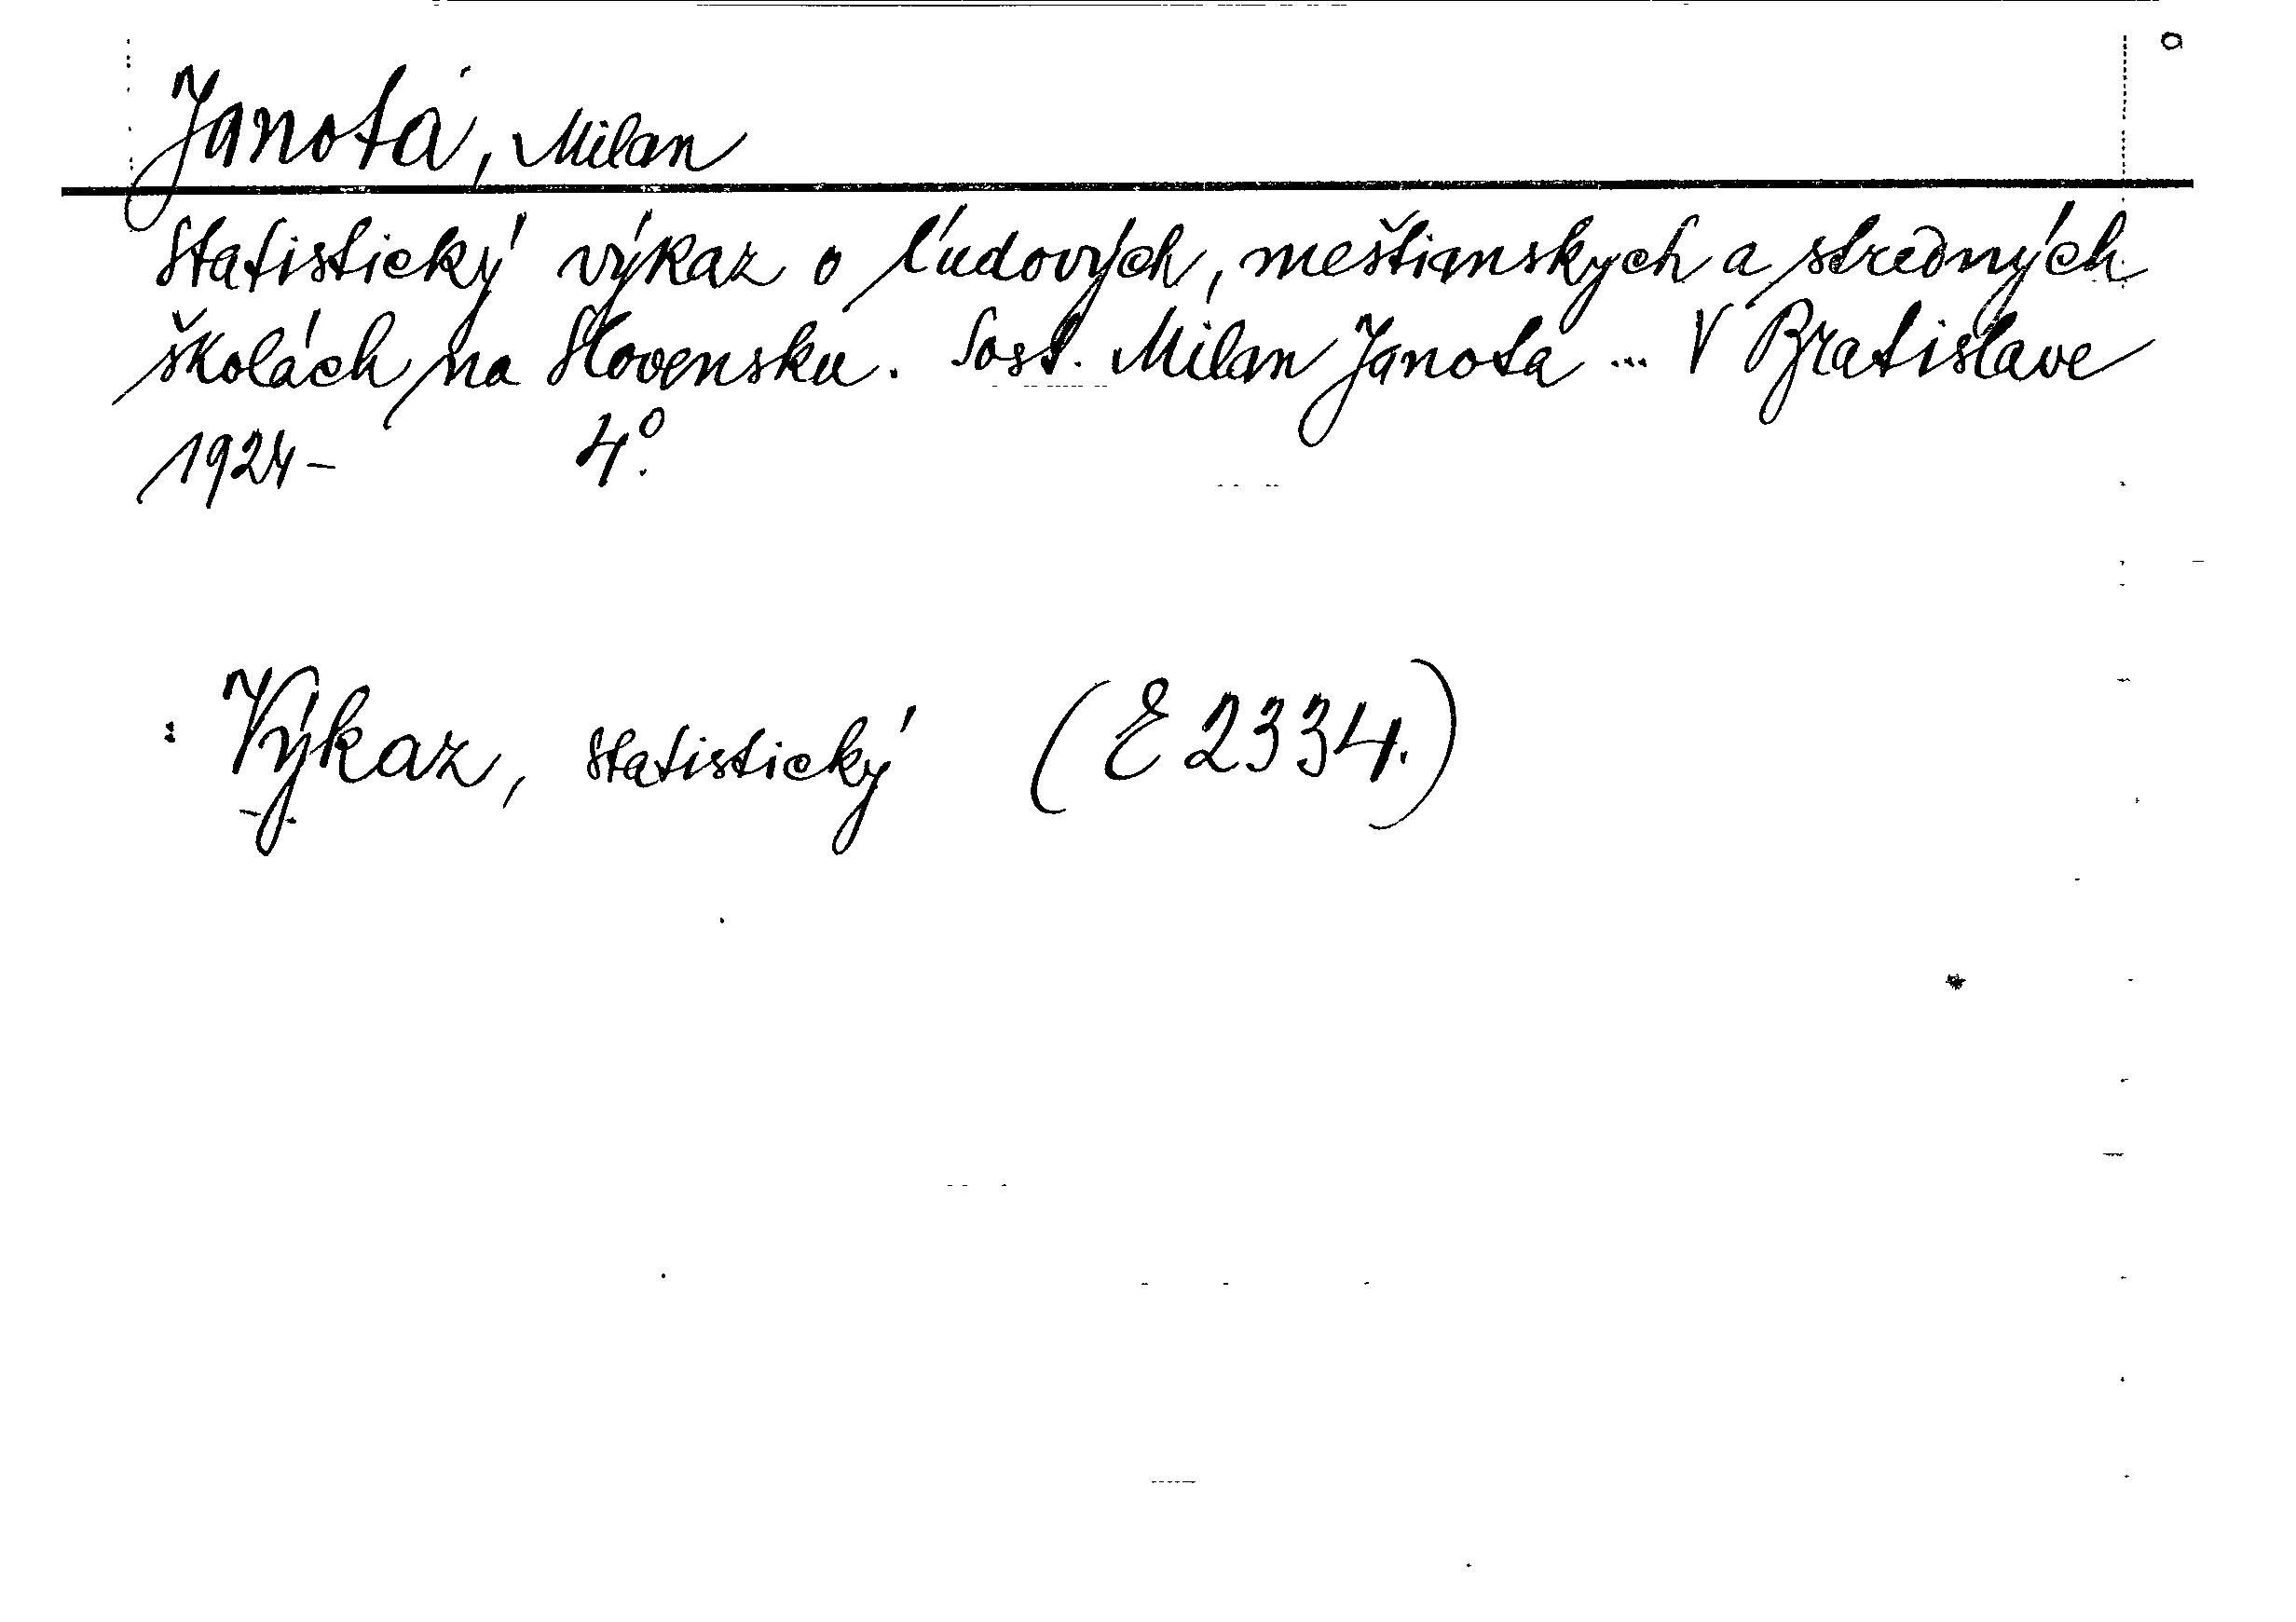 Janota, Milan
Statistický výkaz o ľudových, meštianskych a stredných
školách na Slovensku. Sost. Milan Janota ... V Bratislave
1924- 4°.
: Výkaz, statistický (E 2334.)